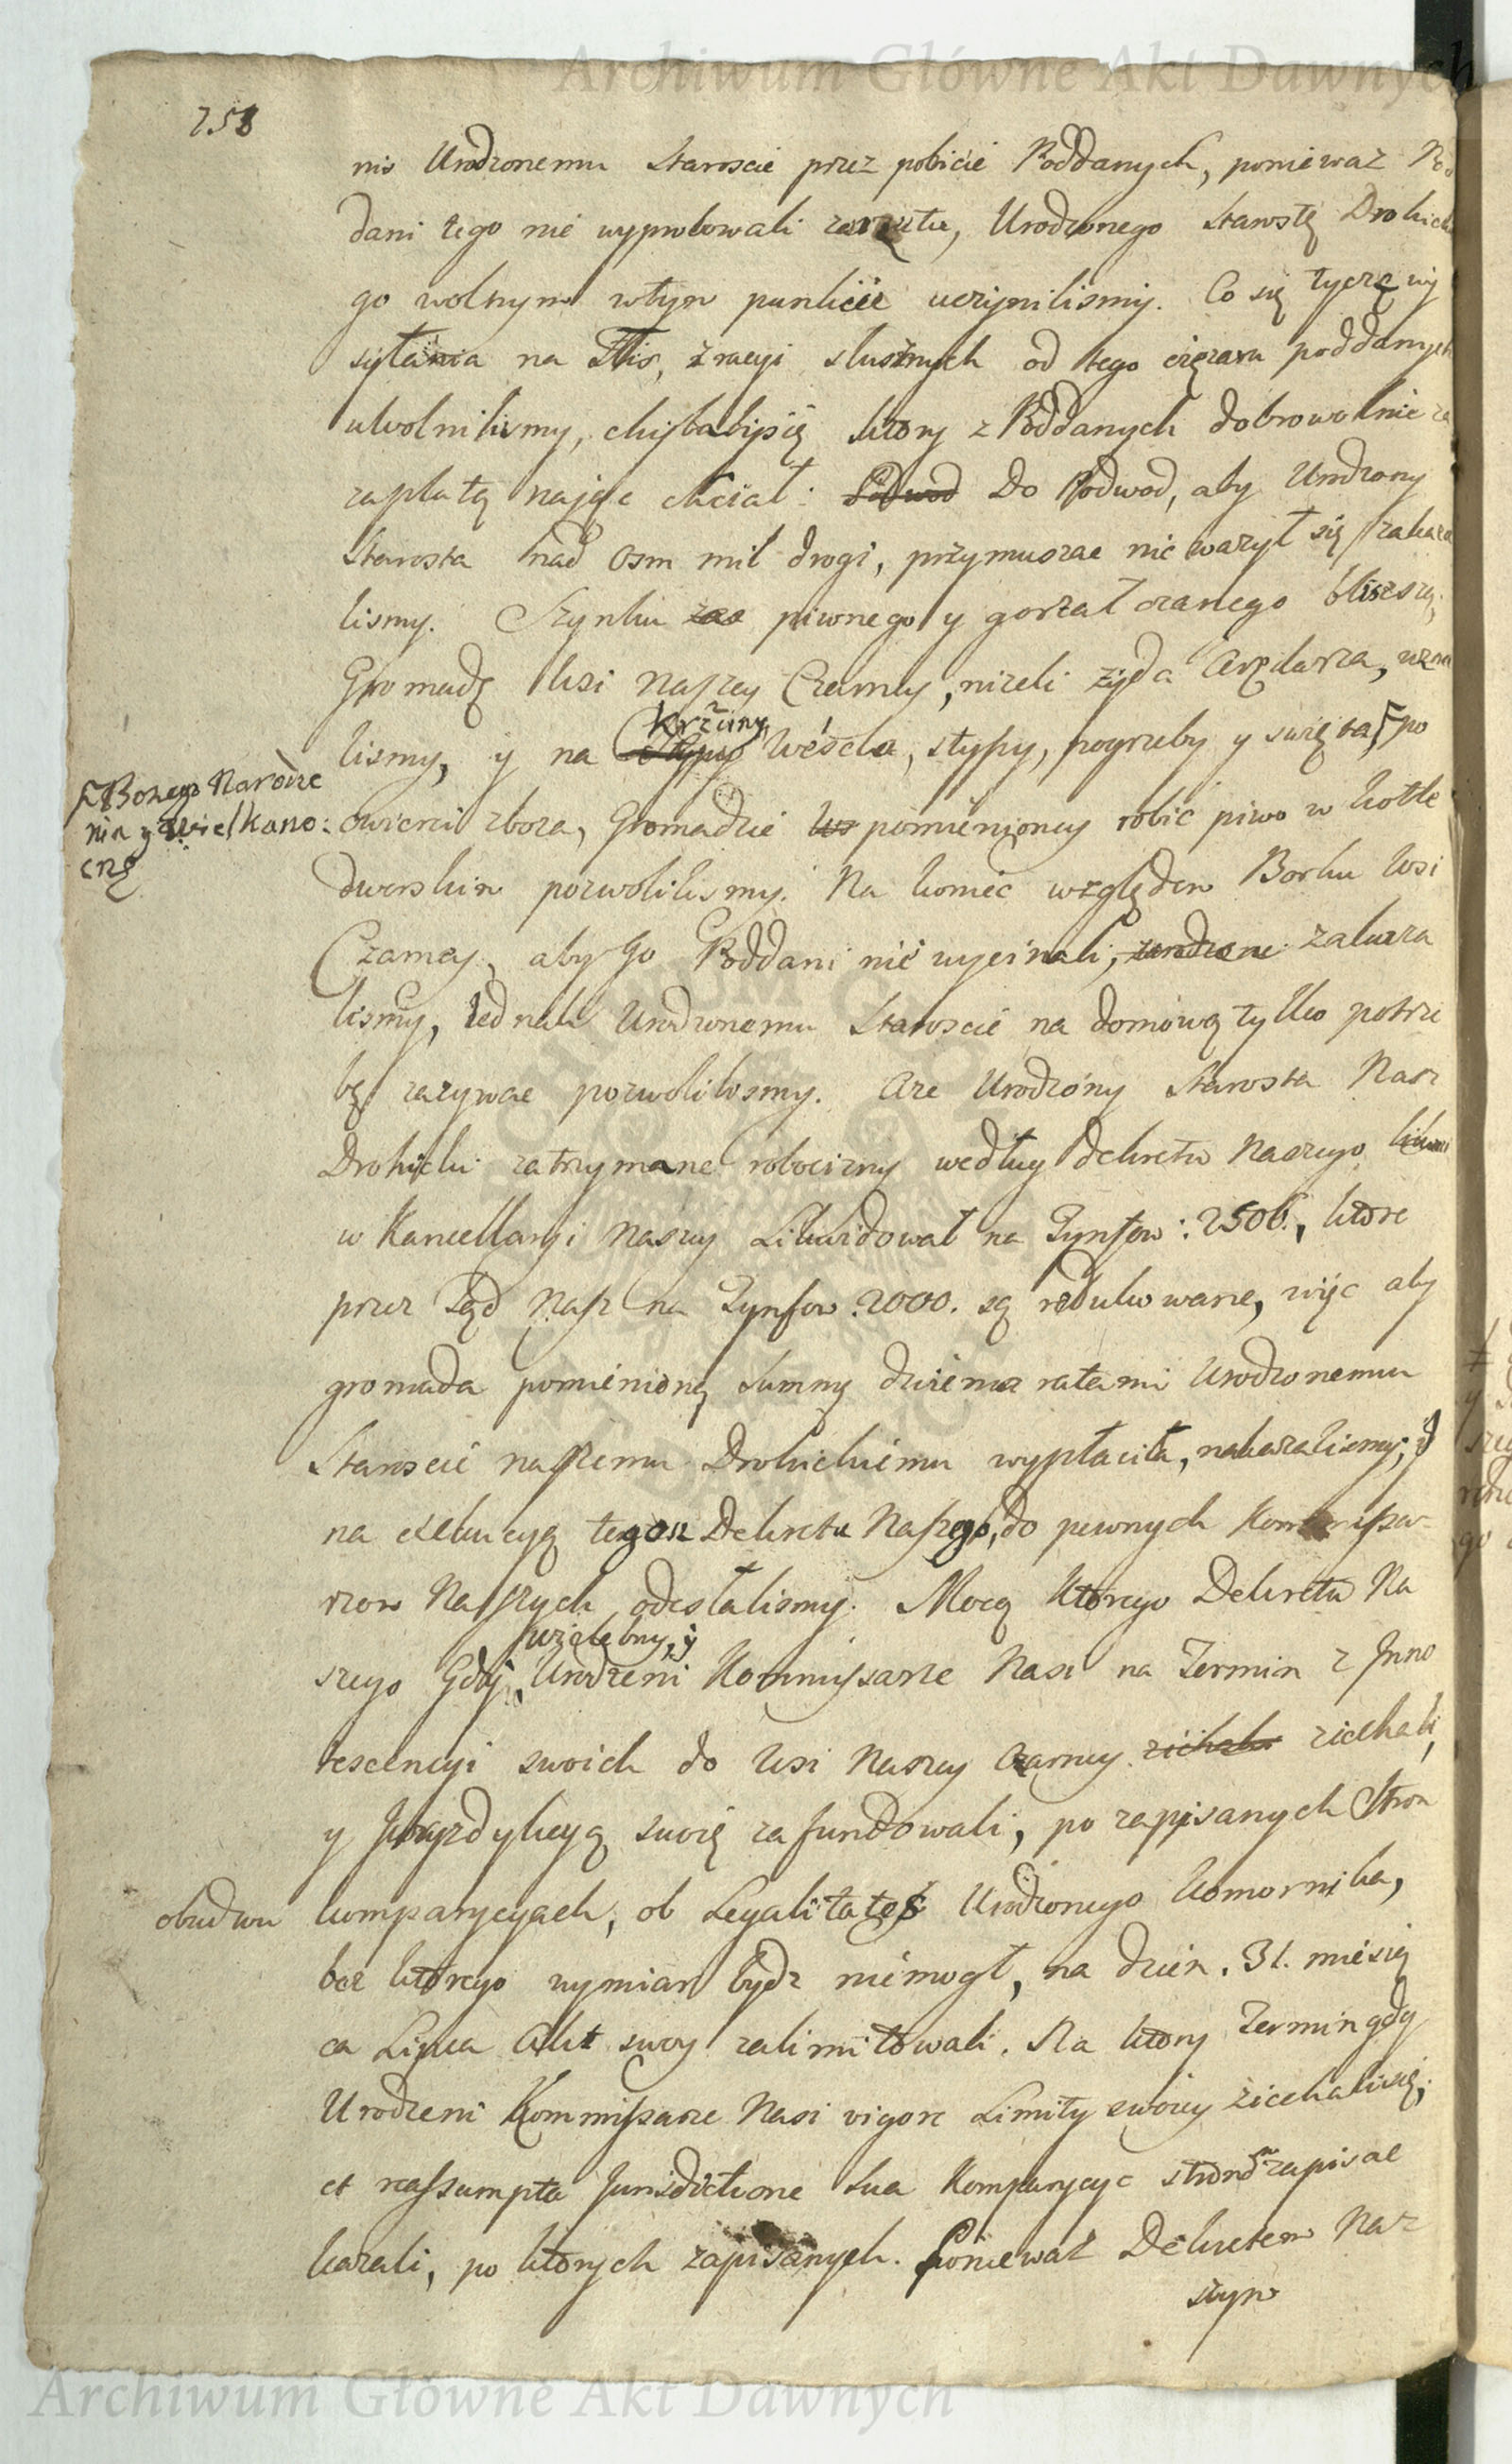 Archiwum Główne Akt Dawnych
258
nio Urodzonemu Staroscie przez pobicie Poddanych, poniewaz Po
dani tego nie wyprobowali zarzutu, Urodzonego Starostę Drohick
go wolnym wtym punkcie uczynilismy. Co się tycze wy
syłania na Flis, z racyi słusznych od tego ciężaru poddanych
uwolnilismy, chybabysię ktory z Poddanych dobrowolnie za
zapłatę nająć chciał: Podwod Do Podwod, aby Urodzony
Starosta nad osm mil drogi, przymuszac nie ważył się, zakaza
lismy. Szynku zas piwnego y gorzałczanego bliszszą
Gromadę Wsi Naszey Czarney, nizeli żyda Arędarza, uzna
lismy, y na Krzciny, Wesela, stypy, pogrzeby y swięta, po
Bozego Narodze
nia y Wielkano:
cne
cwierci zboza, Gromadzie pomienioney robić piwo w kotle
dworskim pozwolilismy. Na koniec względem Borku Wsi
Czarney, aby Go Poddani nie wycinali, zakaza
lismy, iednak Urodzonemu Staroscie na domową tylko potrze
bę zazywac pozwolilismy. Aze Urodzony Starosta Nasz
Drohicki zatrzymane robocizny według dekretu Naszego
w Kancellaryi Naszey Likwidował na Tynfow: 2506., ktore
przez Sąd Nasz na Tynfow 2000. są redukowane, więc aby
gromada pomienioną Summę dwiema ratami Urodzonemu
Staroscie naszemu Drohickiemu wypłaciła, nakazalismy; y
na exekucyą tegosz Dekretu Naszego, do pewnych Kommissa-
rzow Naszych odesłalismy. Mocą Ktorego Dekretu Na
szego Gdy Wielebny, y Urodzeni Kommissarze Nasi na Termin z Inno
tescencyi swoich do Wsi Naszey Czarney ziechali ziechali,
y Juryzdykcyą swoię zafundowali, po zapisanych Stron
obudwu
komparycyach, ob Legalitates Urodzonego Komornika,
bez ktorego wymiar bydz niemogł, na dzien. 31. miesią
ca Lipca Akt swoy zalimitowali. Na ktory Termin gdy
Urodzeni Kommissarze Nasi vigore Limity swoiey ziechalisię,
et reassumpta Jurisdictione sua Komparycye stron zapisac
kazali, po ktorych zapisanych. Poniewaz Dekretem Na
szym
Archiwum Główne Akt Dawnych